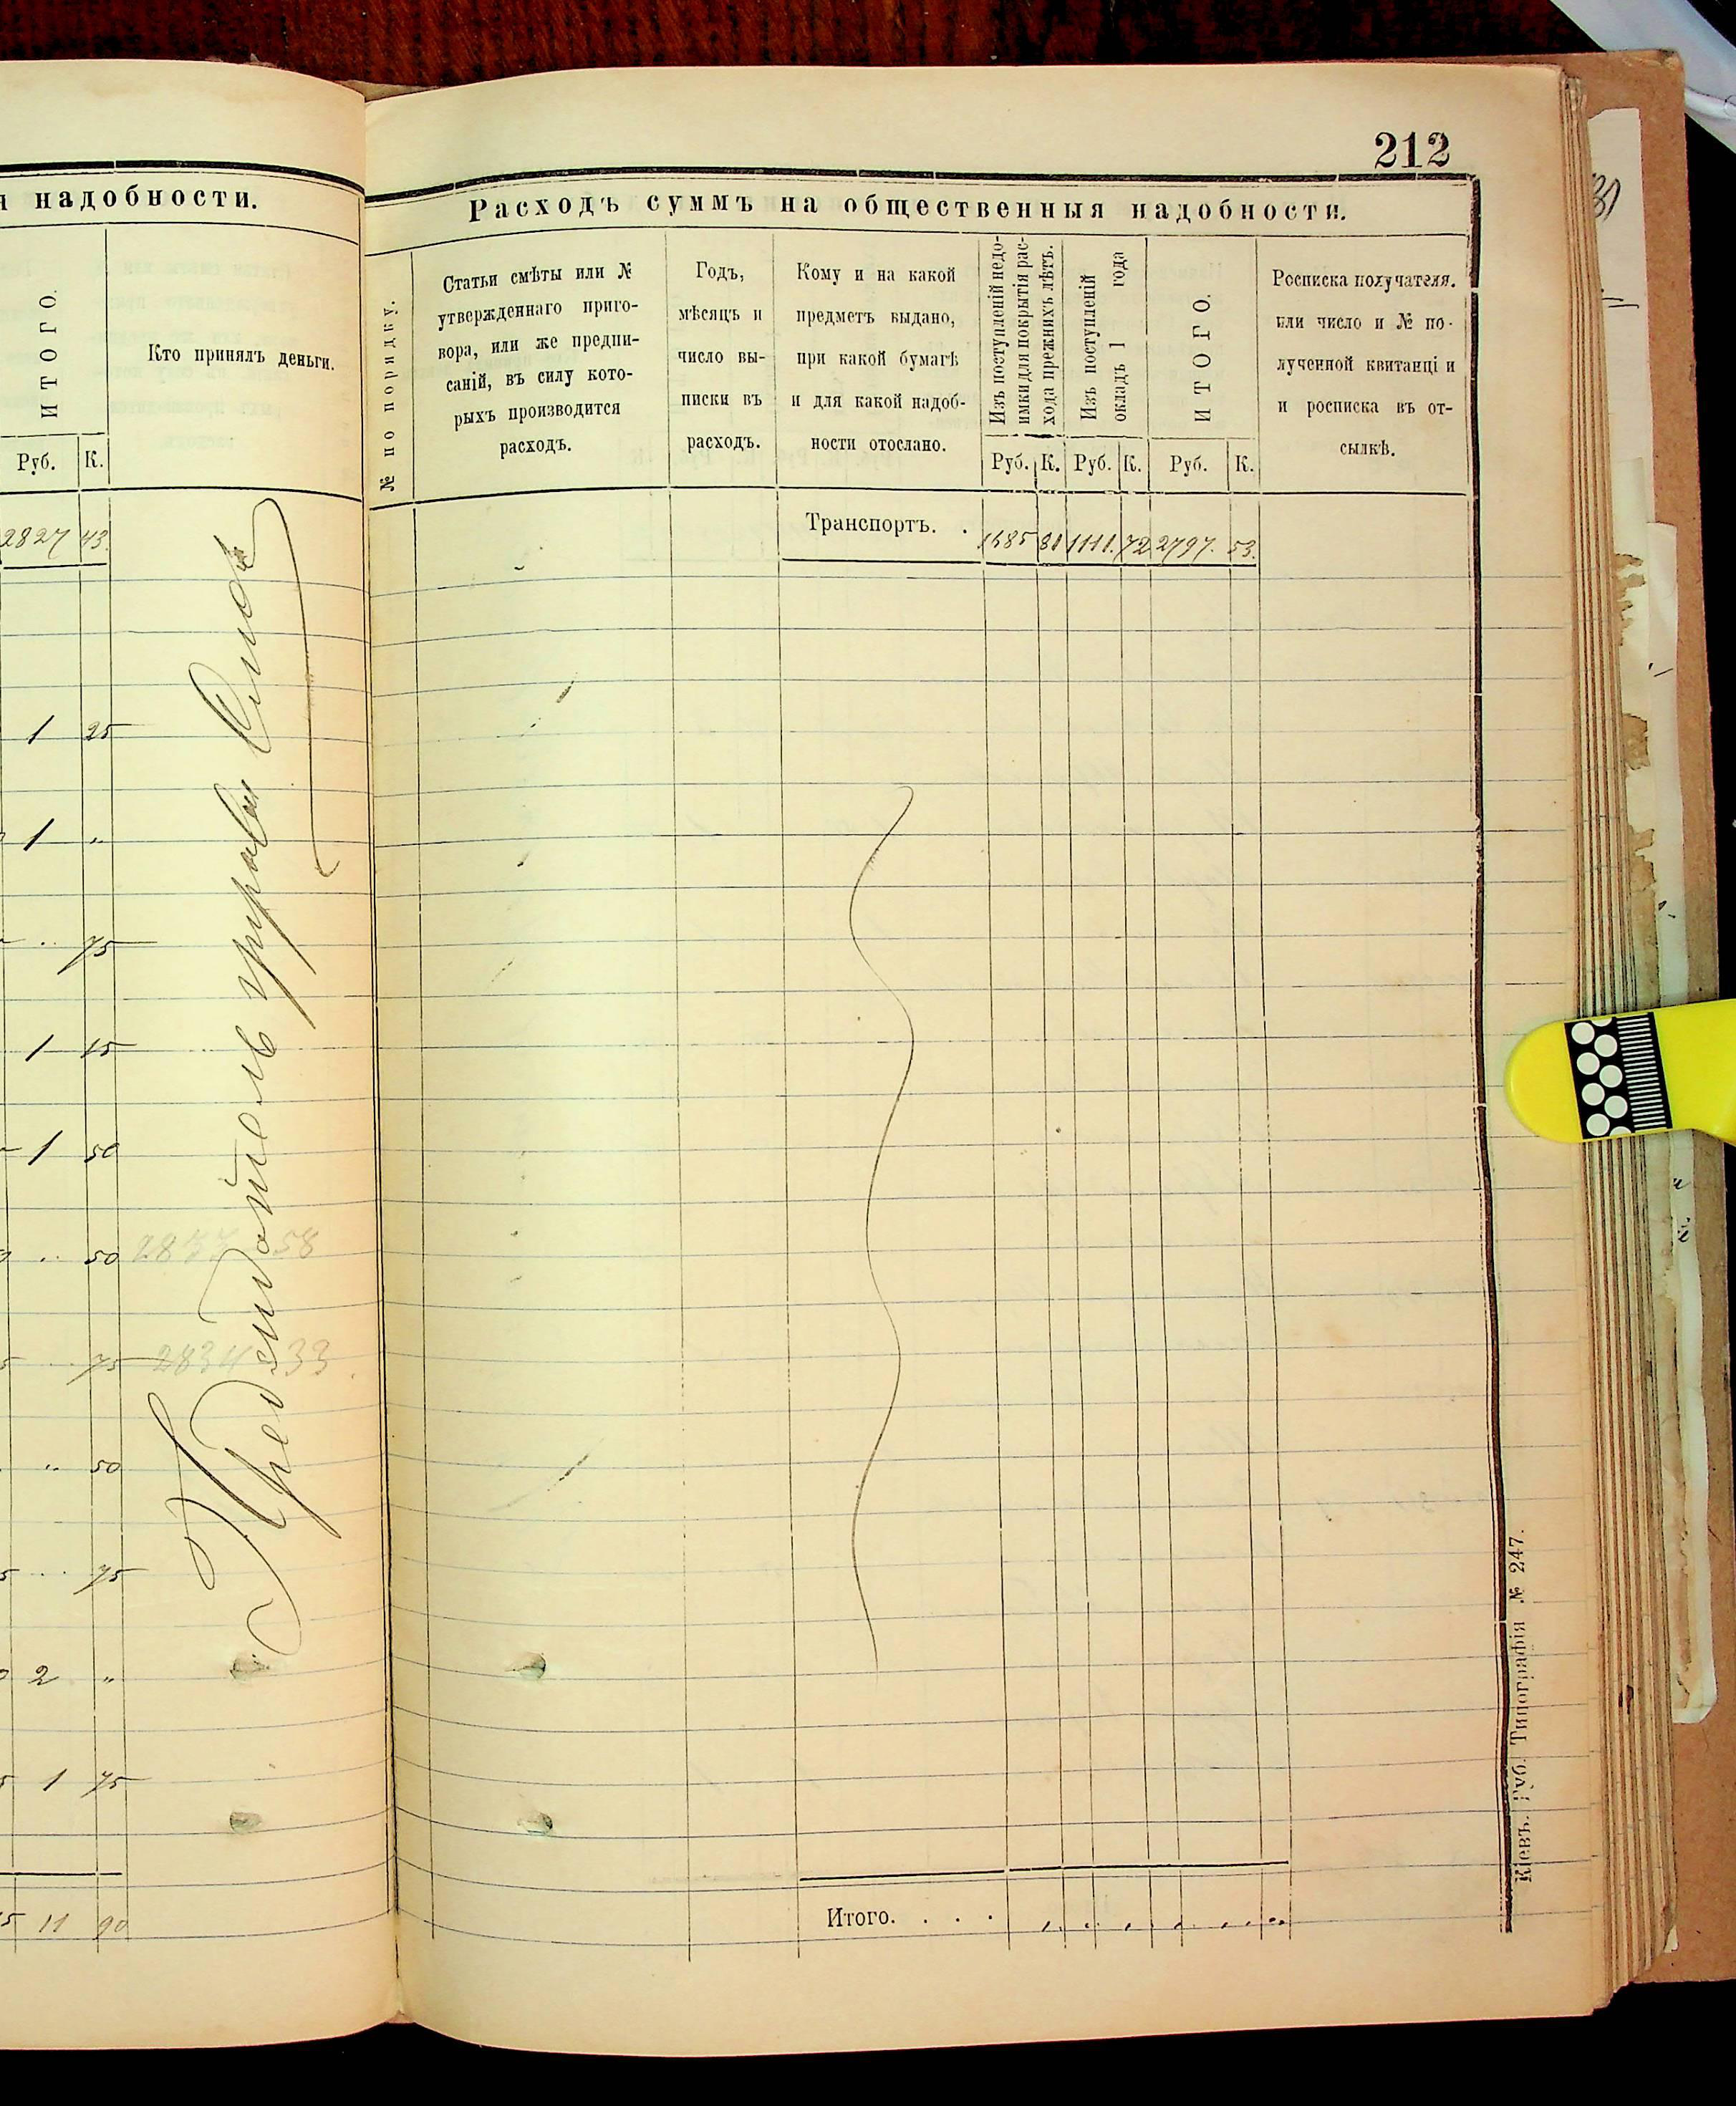 я надобности.
ИТОГО.
Кто принялъ деньги.
Руб. К.
2827 43.
1 25
1 "
.. 75
1 15
1 50
.. 50
.. 75
2834 33.
" 50
.. 75
2 "
1 75
11 90
Предсидатель управы
212
Расходъ суммъ на общественныя надобности.
№ по порядку.
Статьи смѣты или №
утвержденнаго приго-
вора, или же предпи-
саній, въ силу кото-
рыхъ производится
расходъ.
Годъ,
мѣсяцъ и
число вы-
писки въ
расходъ.
Кому и на какой
предметъ выдано,
при какой бумагѣ
и для какой надоб-
ности отослано.
Изъ поступленій недо-
имки для покрытія рас-
хода прежнихъ лѣтъ.
Изъ поступленій
окладъ 1 года
ИТОГО.
Росписка получателя.
или число и № по-
лученной квитанціи
и росписка въ от-
сылкѣ.
Руб. К. Руб. К. Руб. К.
Транспортъ. . 1685 81 1111. 72 2797. 53.
Итого. . . .
Кіевъ. Губ. Типографія № 247.